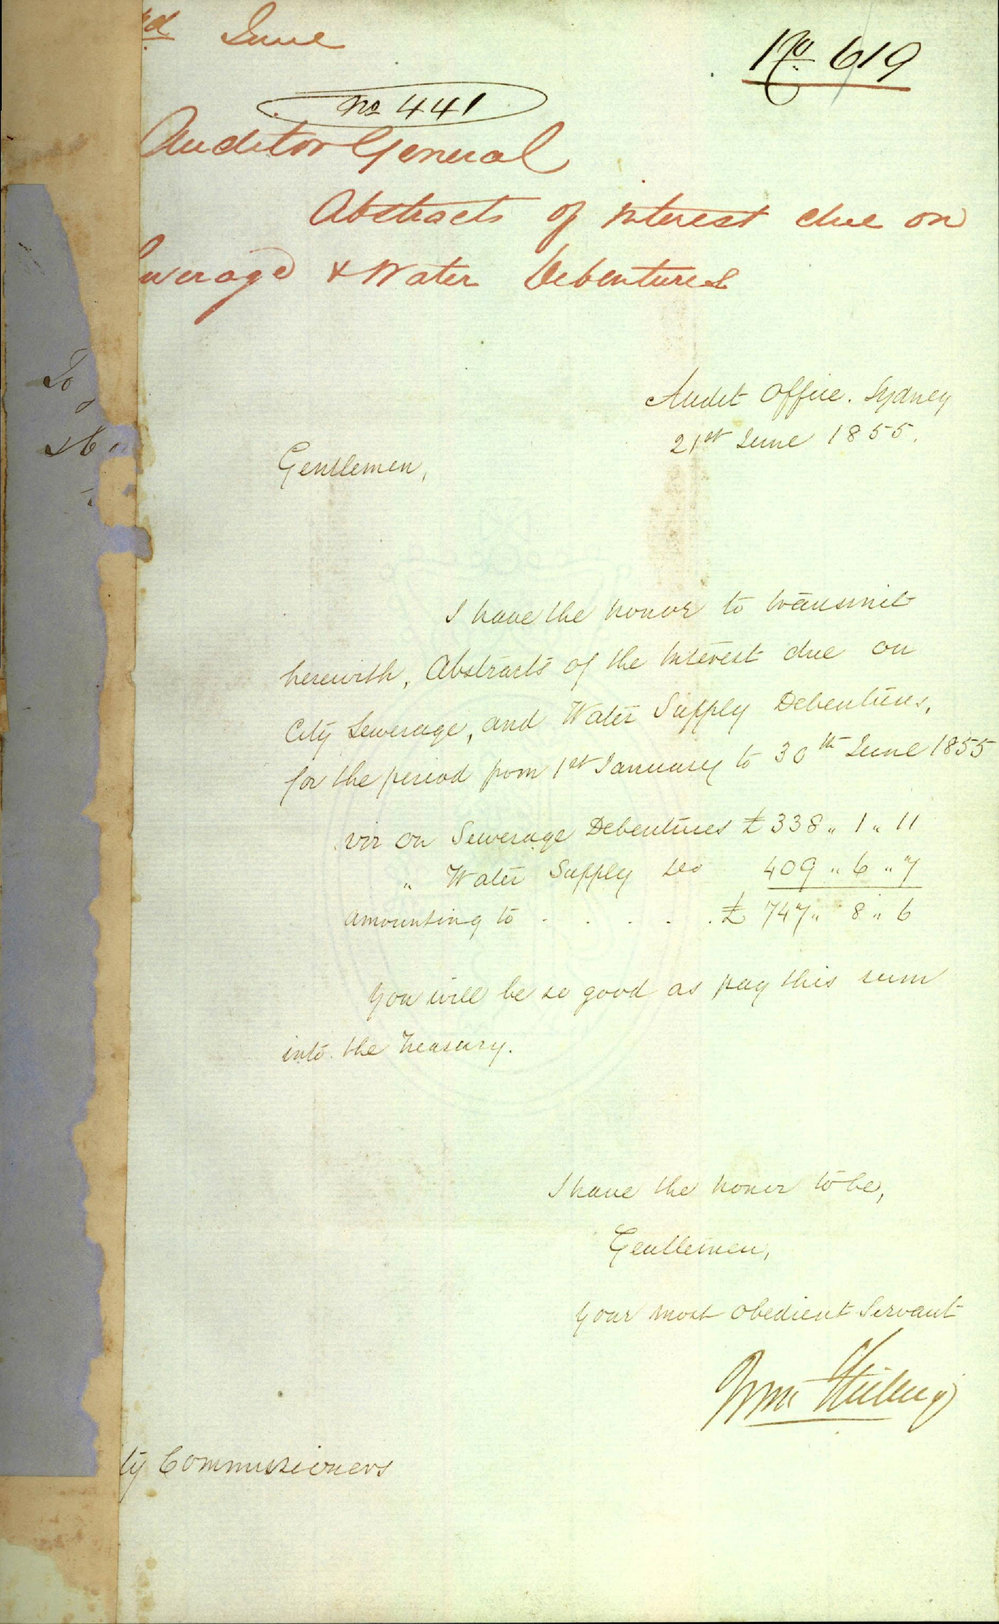 June
No 619
No 441
Auditor General
Abstracts of interest due on
werage & Water Debentures
To
Audit Office. Sydney
21st June 1855.
Gentlemen,
I have the honor to transmit
herewith, Abstracts of the Interest due on
City Sewerage, and Water Supply Debentures,
for the period from 1st January to 30th June 1855
viz on Sewerage Debentures £338 „ 1 „ 11
„ Water Supply do 409 „ 6 „ 7
amounting to . . . . . £ 747 „ 8 „ 6
You will be so good as pay this sum
into the Treasury.
I have the honor to be,
Gentlemen,
Your most obedient Servant
Wm
ty Commissioners